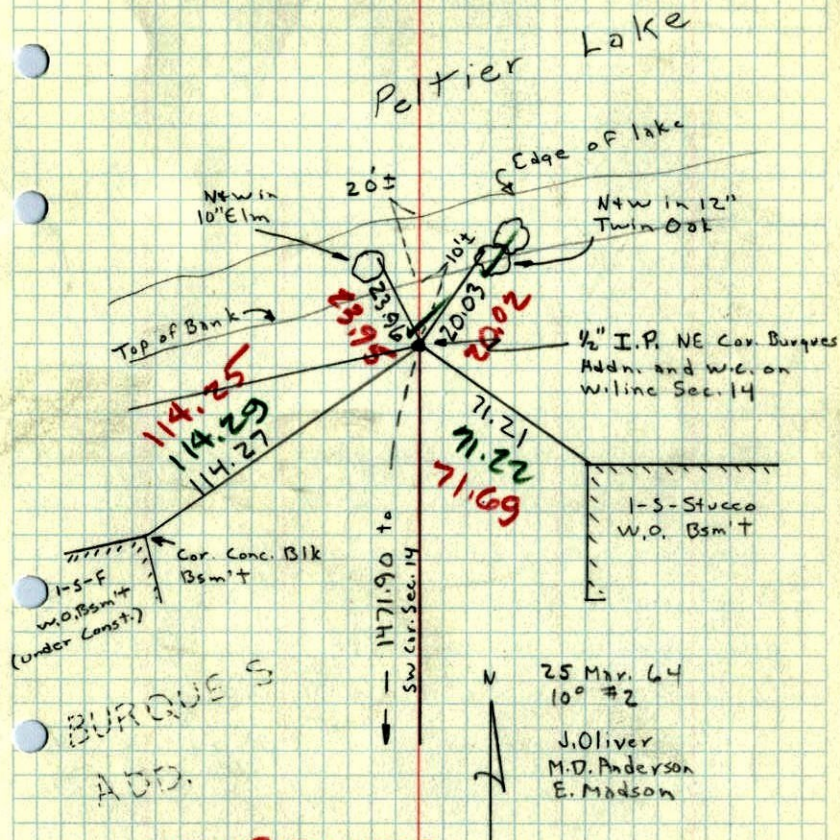 Peltier Lake
Edge of lake
20'±
N+W in
10" Elm
N+W in 12"
Twin Oak
10'±
23.96
20.03
20.02
Top of Bank
½" I.P. NE Cor. Burques
Addn. and w.c. on
W. line Sec. 14
114.25
114.29
114.27
71.21
71.22
71.69
1-S-Stucco
W.O. Bsm't
Cor. Conc. Blk
Bsm't
1-S-F
W.O. Bsm't
(under Const.)
1471.90 to
SW Cor. Sec. 14
BURQUES
ADD.
N
25 Mar. 64
10° #2
J. Oliver
M.D. Anderson
E. Madson